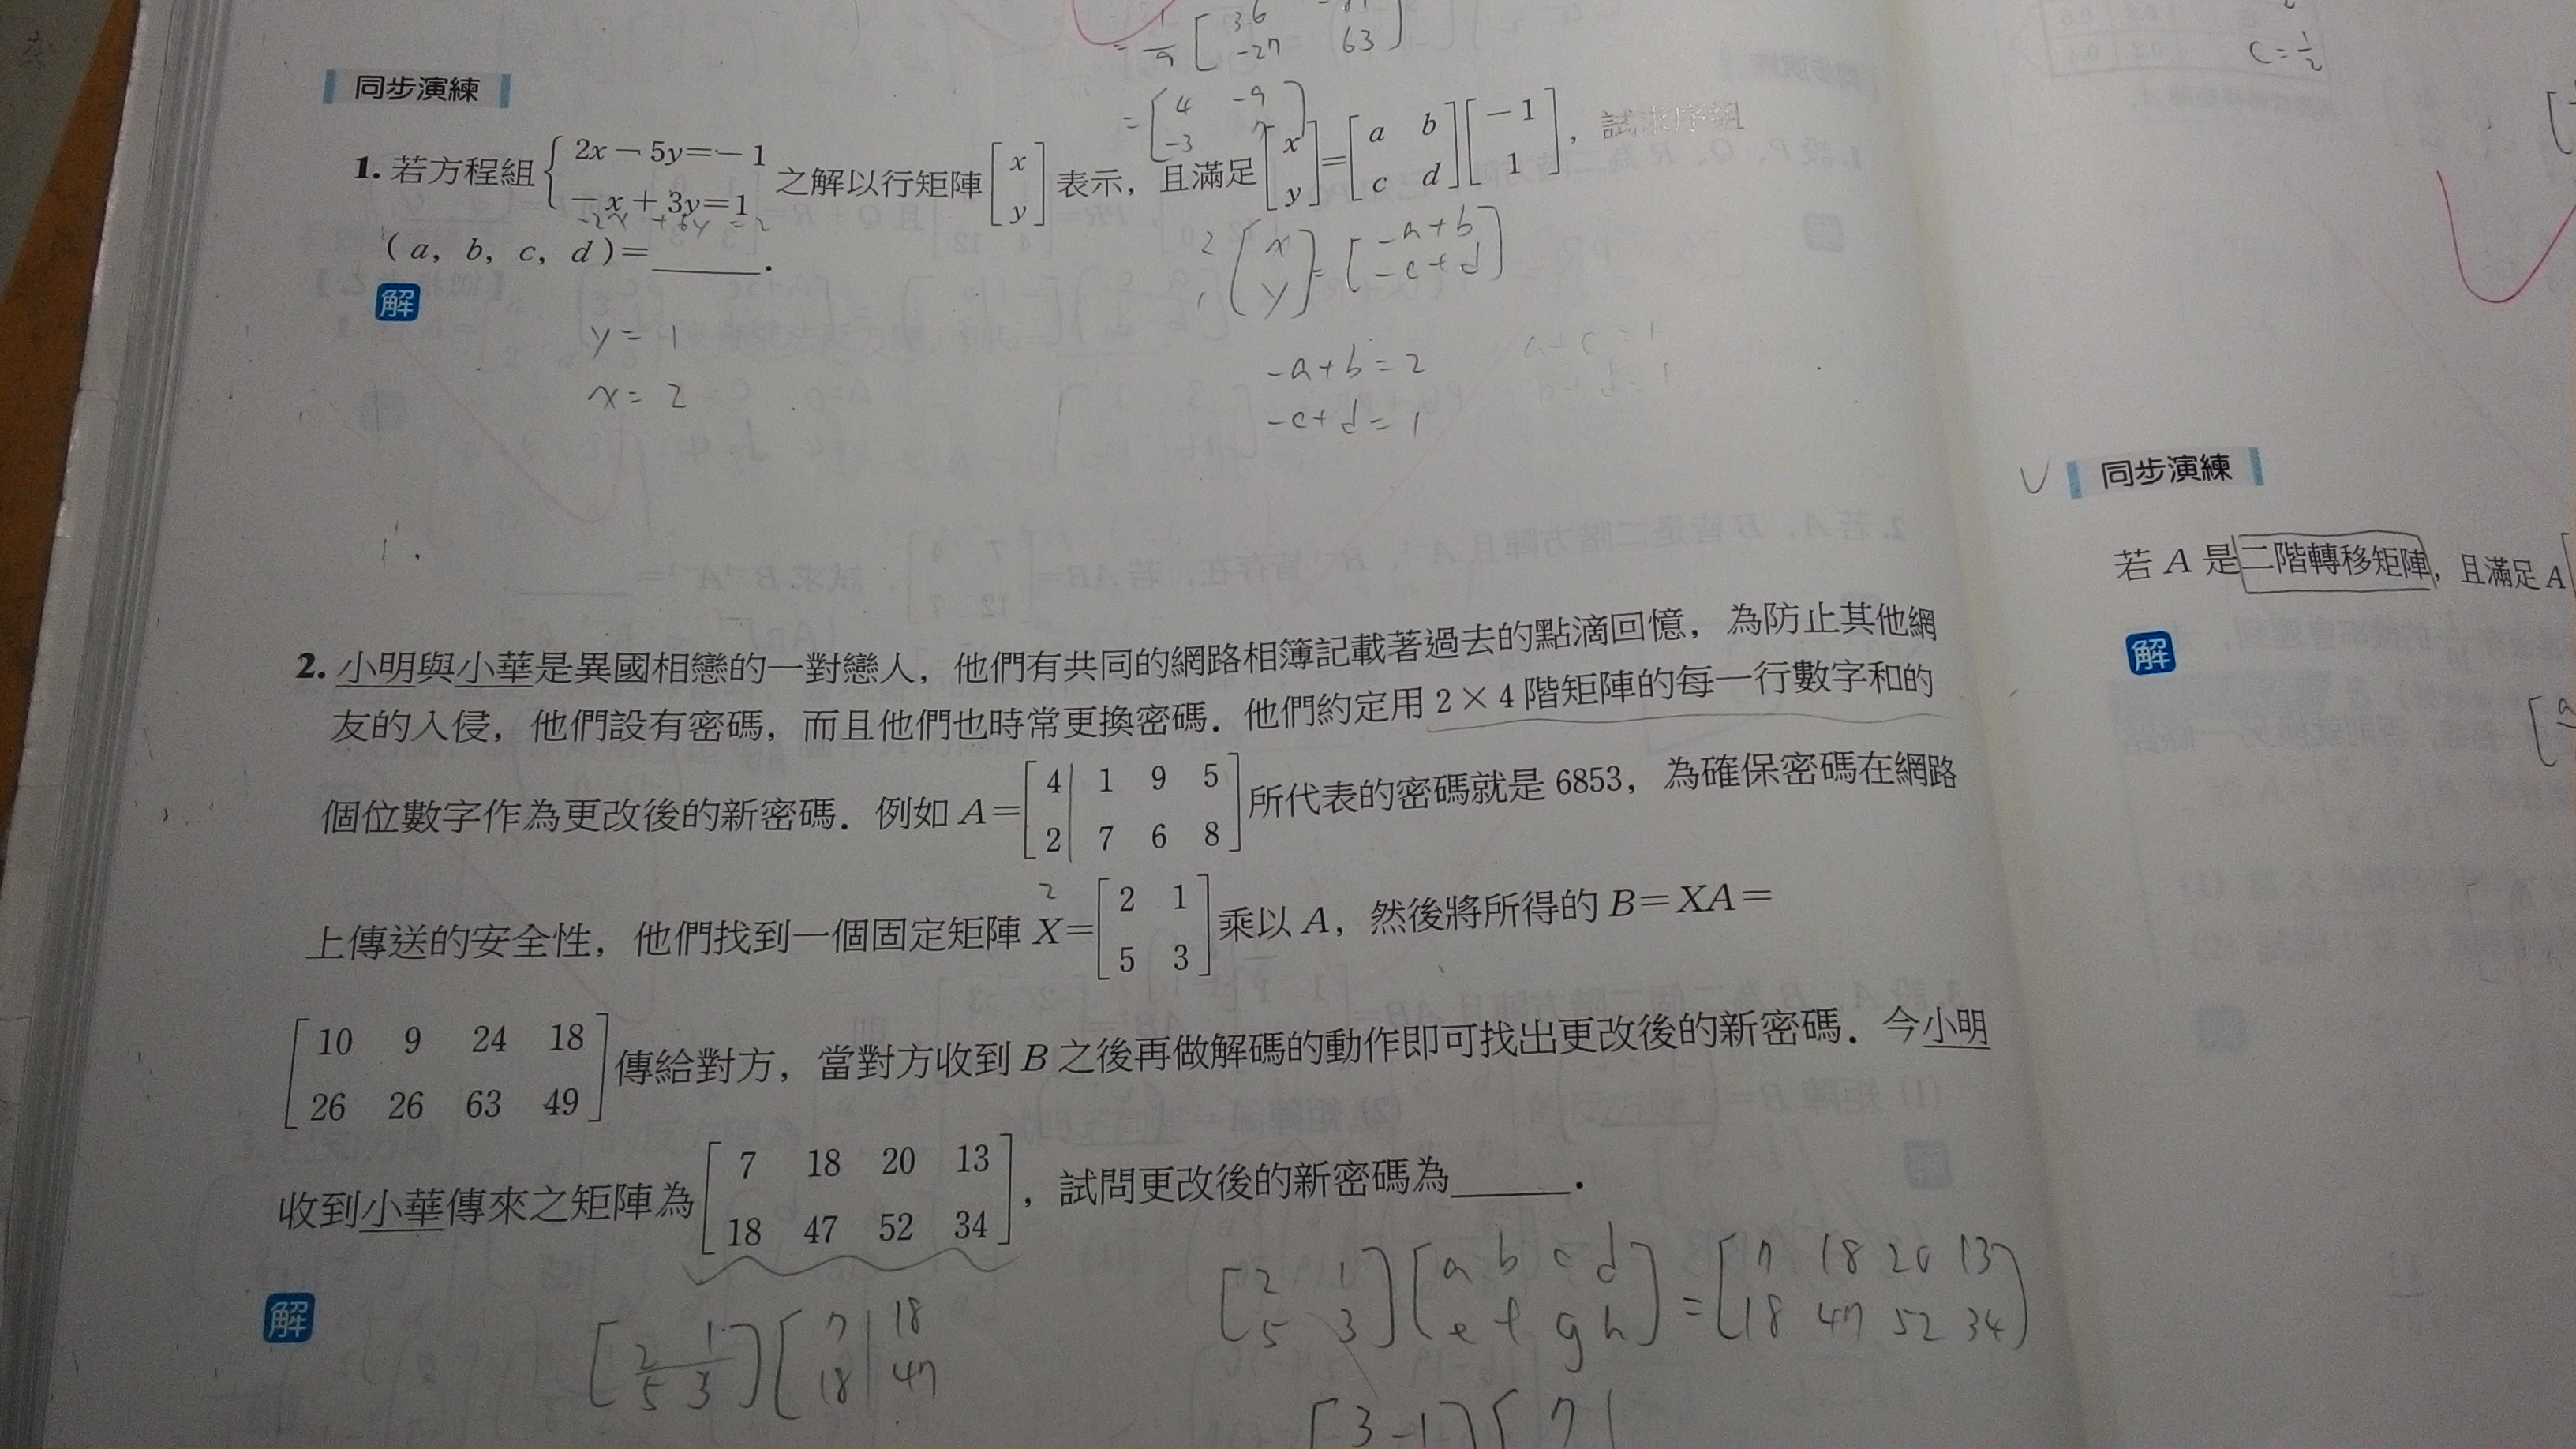 = 1/9 [ 36
-27 63 ]
= [ 4 -9
-3 7 ]
C = 1/2
同步演練
1. 若方程組 { 2x－5y=－1
－x＋3y=1 之解以行矩陣 [ x
y ] 表示，且滿足 [ x
y ] = [ a b
c d ] [ －1
1 ]，試求序組
-2x + 6y = 2
(a, b, c, d)=______．
2 [ x
1 y ] = [ -a+b
-c+d ]
解
y = 1
x = 2
-a+b = 2
-c+d = 1
a-c = 1
2. 小明與小華是異國相戀的一對戀人，他們有共同的網路相簿記載著過去的點滴回憶，為防止其他網
友的入侵，他們設有密碼，而且他們也時常更換密碼．他們約定用 2×4 階矩陣的每一行數字和的
個位數字作為更改後的新密碼．例如 A= [ 4 1 9 5
2 7 6 8 ] 所代表的密碼就是 6853，為確保密碼在網路
2
上傳送的安全性，他們找到一個固定矩陣 X= [ 2 1
5 3 ] 乘以 A，然後將所得的 B=XA=
[ 10 9 24 18
26 26 63 49 ] 傳給對方，當對方收到 B 之後再做解碼的動作即可找出更改後的新密碼．今小明
收到小華傳來之矩陣為 [ 7 18 20 13
18 47 52 34 ]，試問更改後的新密碼為______．
解
[ 2 1
5 3 ] [ 7 18
18 47
[ 2 1
5 3 ] [ a b c d
e f g h ] = [ 7 18 20 13
18 47 52 34 ]
[ 3 -1 ] [ 7
同步演練
若 A 是二階轉移矩陣，且滿足 A
解